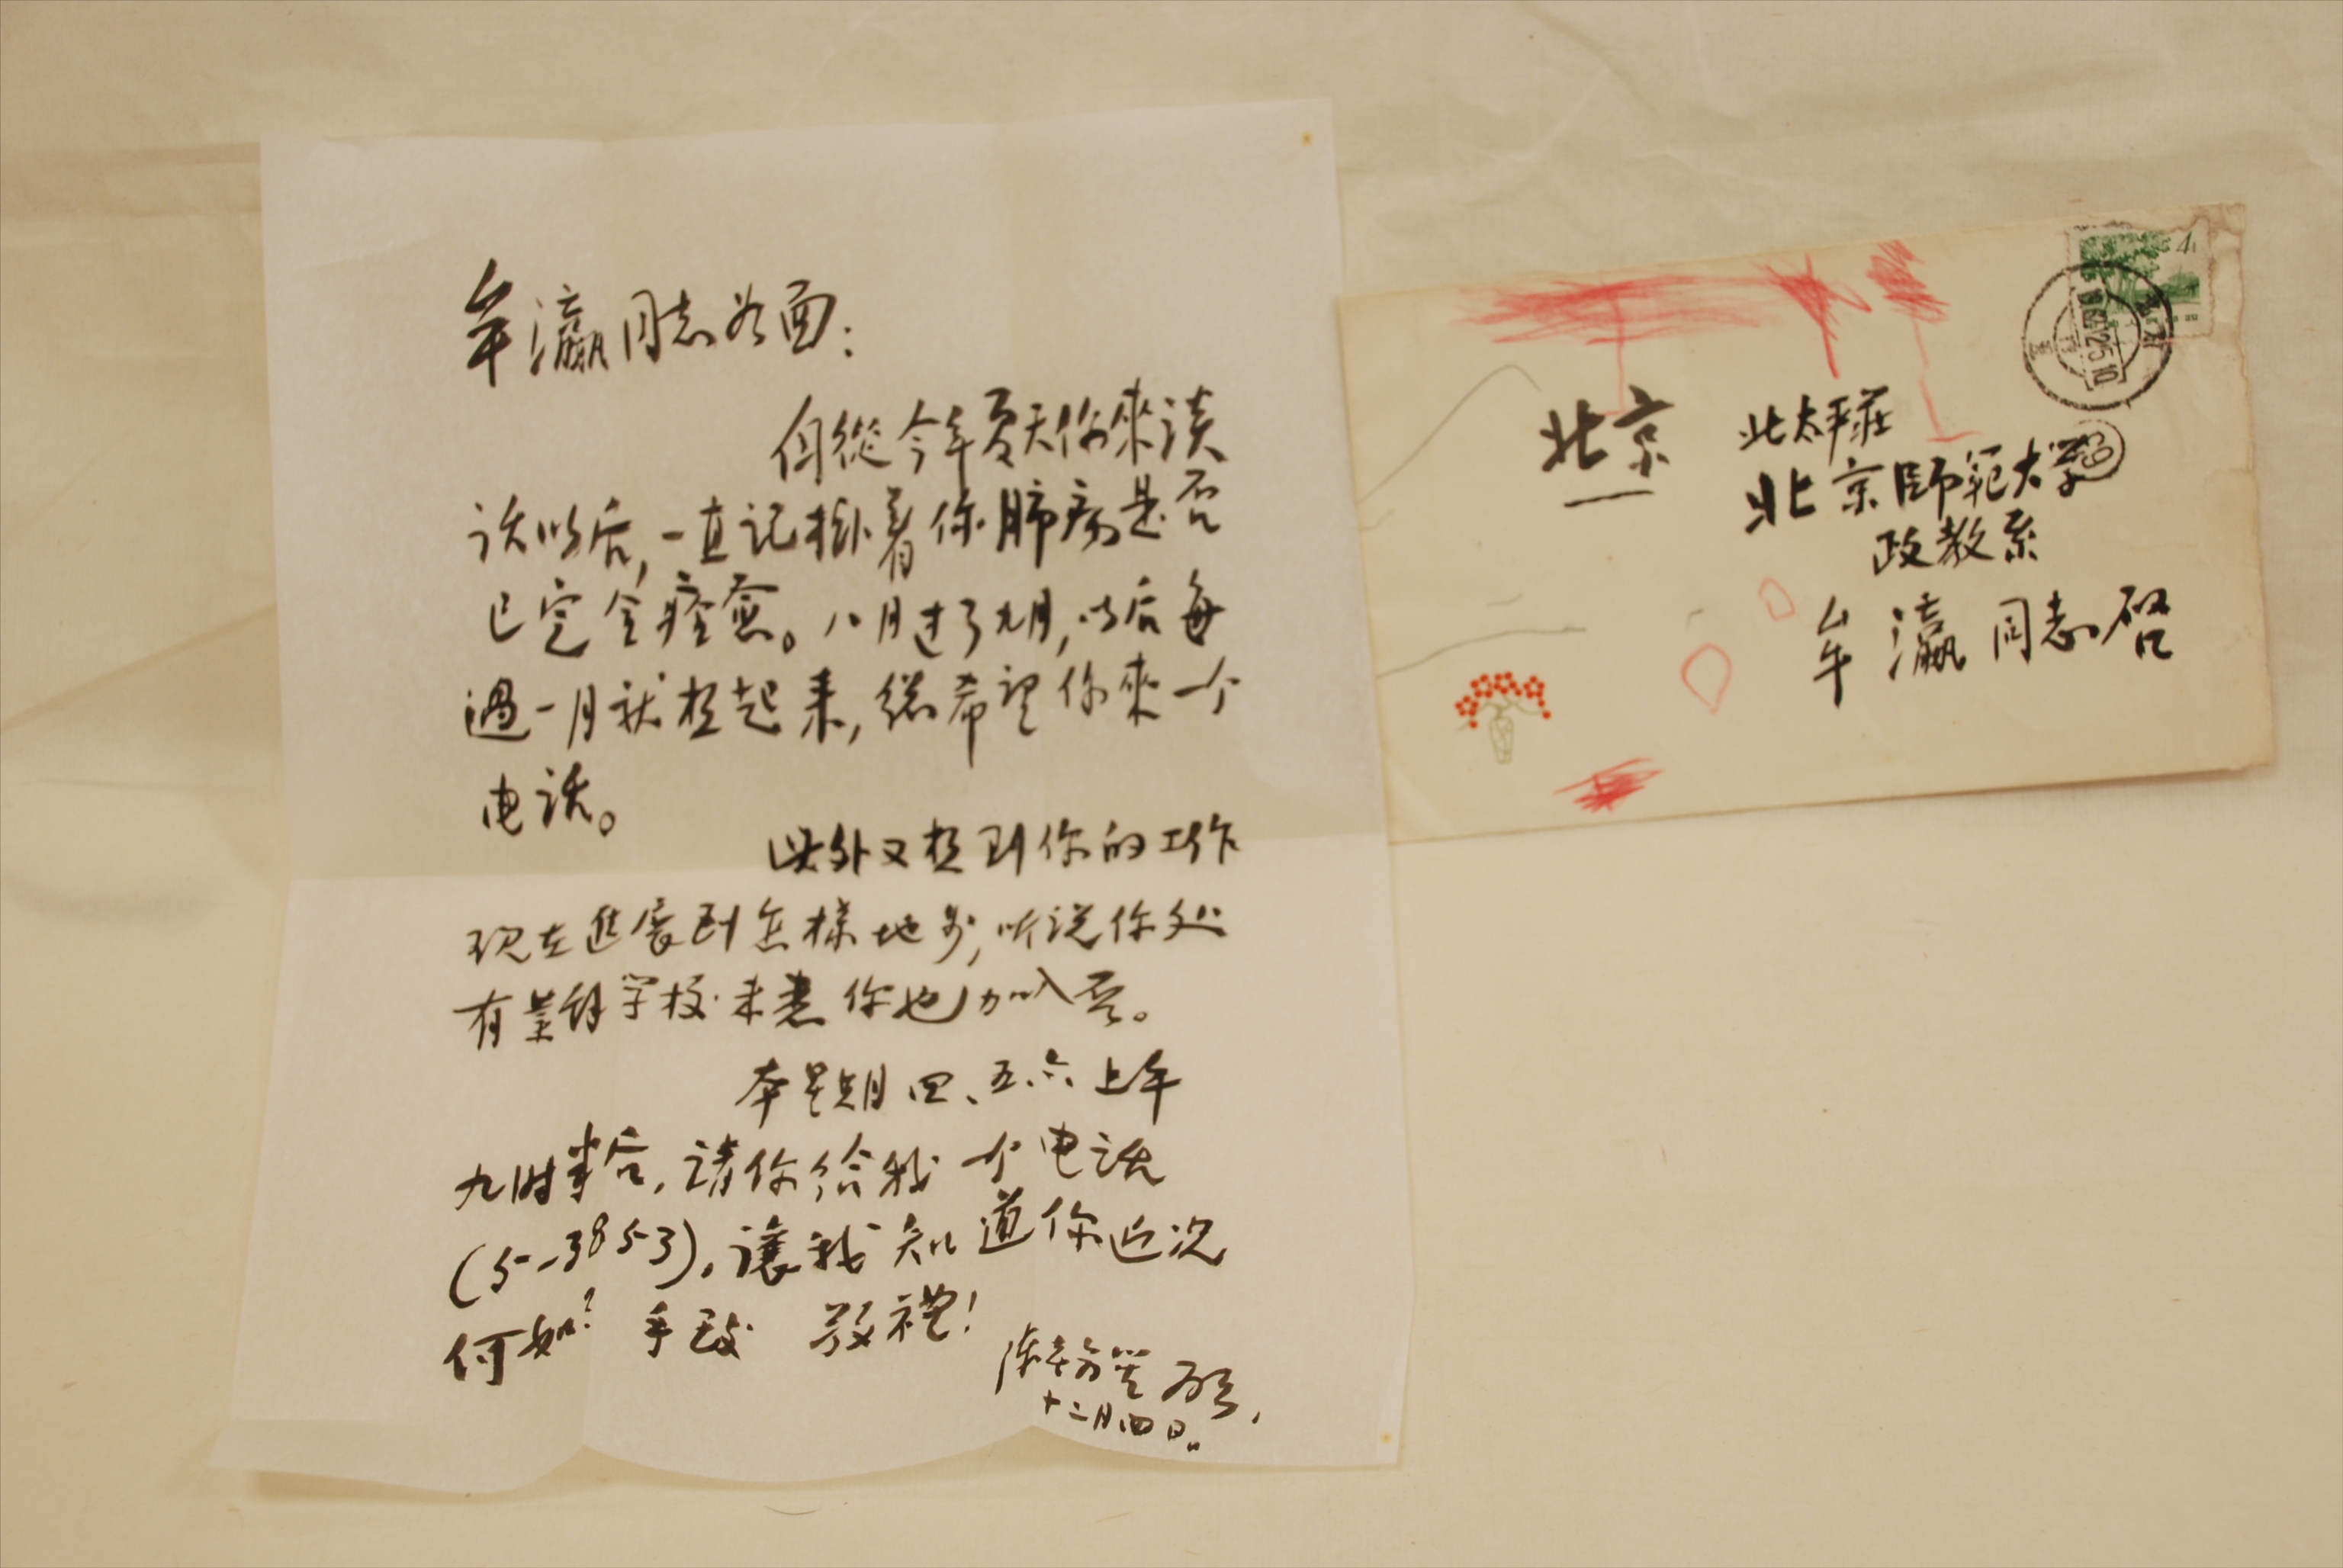 牟瀛同志如面:
自從今年夏天你來谈
话以后,一直记掛着你肺病是否
已完全痊愈。八月过了九月,以后每
過一月就想起来,總希望你來一个
电话。
此外又想到你的工作
现在進展到怎樣地步,听说你处
有業餘学校未悉你也加入否。
本星期四、五、六、上午
九时半后,请你给我一个电话
(5-3853)。讓我知道你近况
何如? 手致 敬禮!
陳翰笙启,
十二月四日。
北京
北太平莊
北京師範大学
政教系
牟瀛同志啓